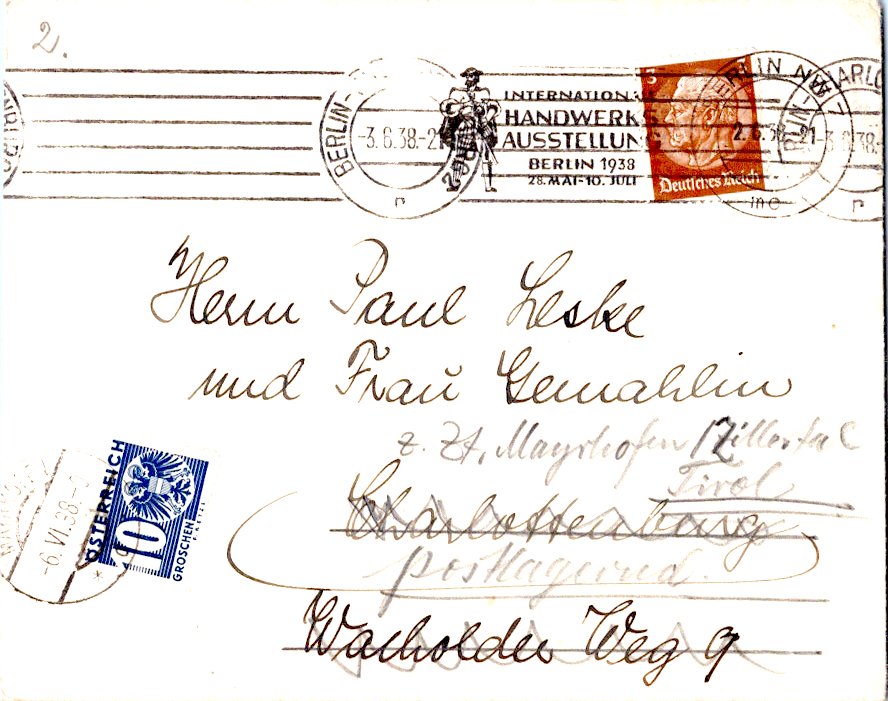 2.
BERLIN-
-3.6.38.-21
n
INTERNATIONALE
HANDWERKS
AUSSTELLUNG
BERLIN 1938
28. MAI-10. JULI
3
Deutsches Reich
BERLIN NW 7
2.6.38.-21
mc
BERLIN-CHARLO
-3.6.38.-
n
Herrn Paul Leske
und Frau Gemahlin
z. Zt. Mayrhofen / Zillertal
Tirol
Charlottenburg
postlagernd.
Wacholder Weg 9
ÖSTERREICH
10
GROSCHEN
PORTO
-6.VI.38-